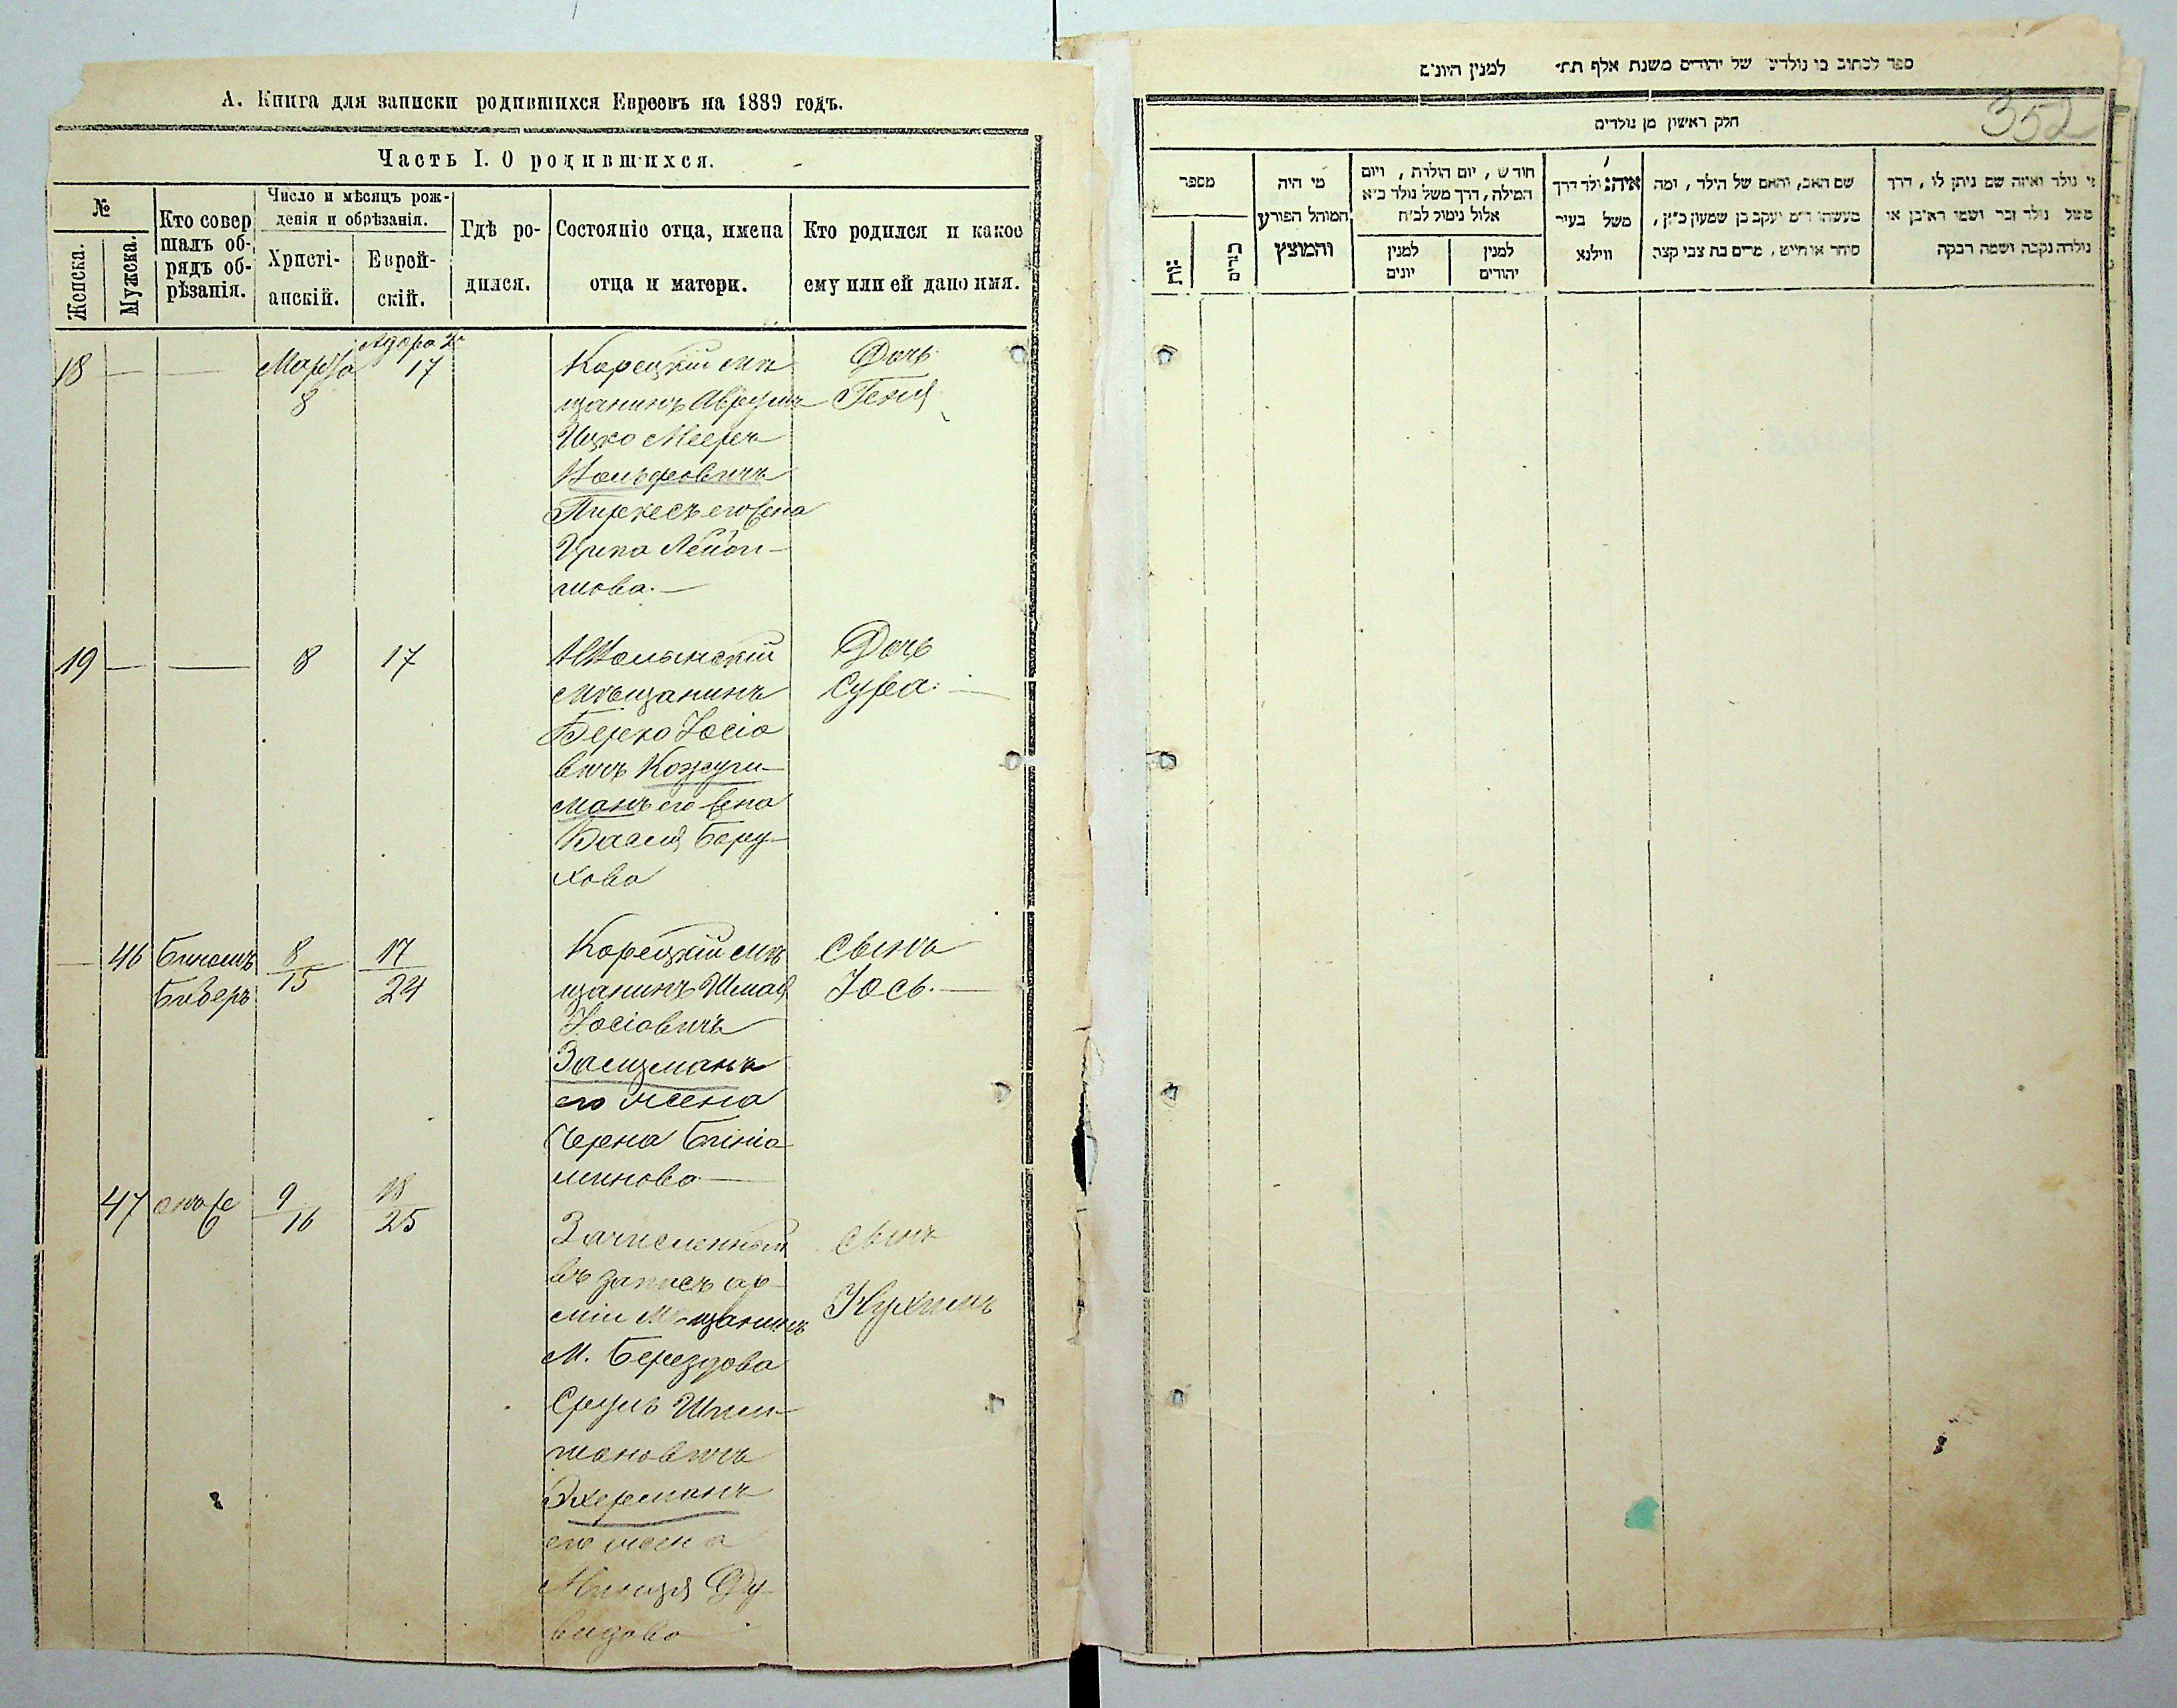 А. Книга для записки родившихся Евреевъ на 1889 годъ.
Часть I. О родившихся.
№
Женска.
Мужска.
Кто совер
шалъ об-
рядъ об-
рѣзанія.
Число и мѣсяцъ рож-
денія и обрѣзанія.
Христі-
анскій.
Еврей-
скій.
Гдѣ ро-
дился.
Состояніе отца, имена
отца и матери.
Кто родился и какое
ему или ей дано имя.
18 — — Марта 8 Адора 2 17
Корецкій мѣ
щанинъ Аврумъ
Ицко Мееръ
Вольфовичъ
Пиркесъ его жена
Лейби
шова. —
Дочь
Геня
19 — — 8 17
Мѣщанинъ
Берко Іосіо
вичъ Кожуш
манъ его жена
Бася Беру
хова
Дочь
Сура. —
— 46 Биномъ
Биберъ
8/15 17/24
Корецкій мѣ
щанинъ Шмая
Іосіовичъ
Залцманъ
его жена
Черна Биніа
минова —
Сынъ
Іось. —
47 онъ же 9/16 18/25
Зачисленный
въ запасъ ар
міи Мѣщанинъ
М. Берездова
Сруль
Экерманъ
его жена
Ду
видова
Сынъ
Нухимъ
ספר לכתוב בו נולדים של יהודים משנת אלף תת׳ למנין היונים
352
חלק ראשון מן נולדים
מספר
זכרים
מי היה
המוהל הפורע
והמוצץ
חודש, יום הולדת, ויום
המילה, דרך משל נולד כ״א
אלול נימול לכ״ח
למנין
יונים
למנין
יהודים
איה נולד דרך
משל בעיר
ווילנא
שם האב, והאם של הילד, ומה
מעשהו ד״מ יעקב בן שמעון כ״ץ,
סוחר או חייט, מרים בת צבי קצה
מי נולד ואיזה שם ניתן לו, דרך
משל נולד זכר ושמו ראובן או
נולדה נקבה ושמה רבקה